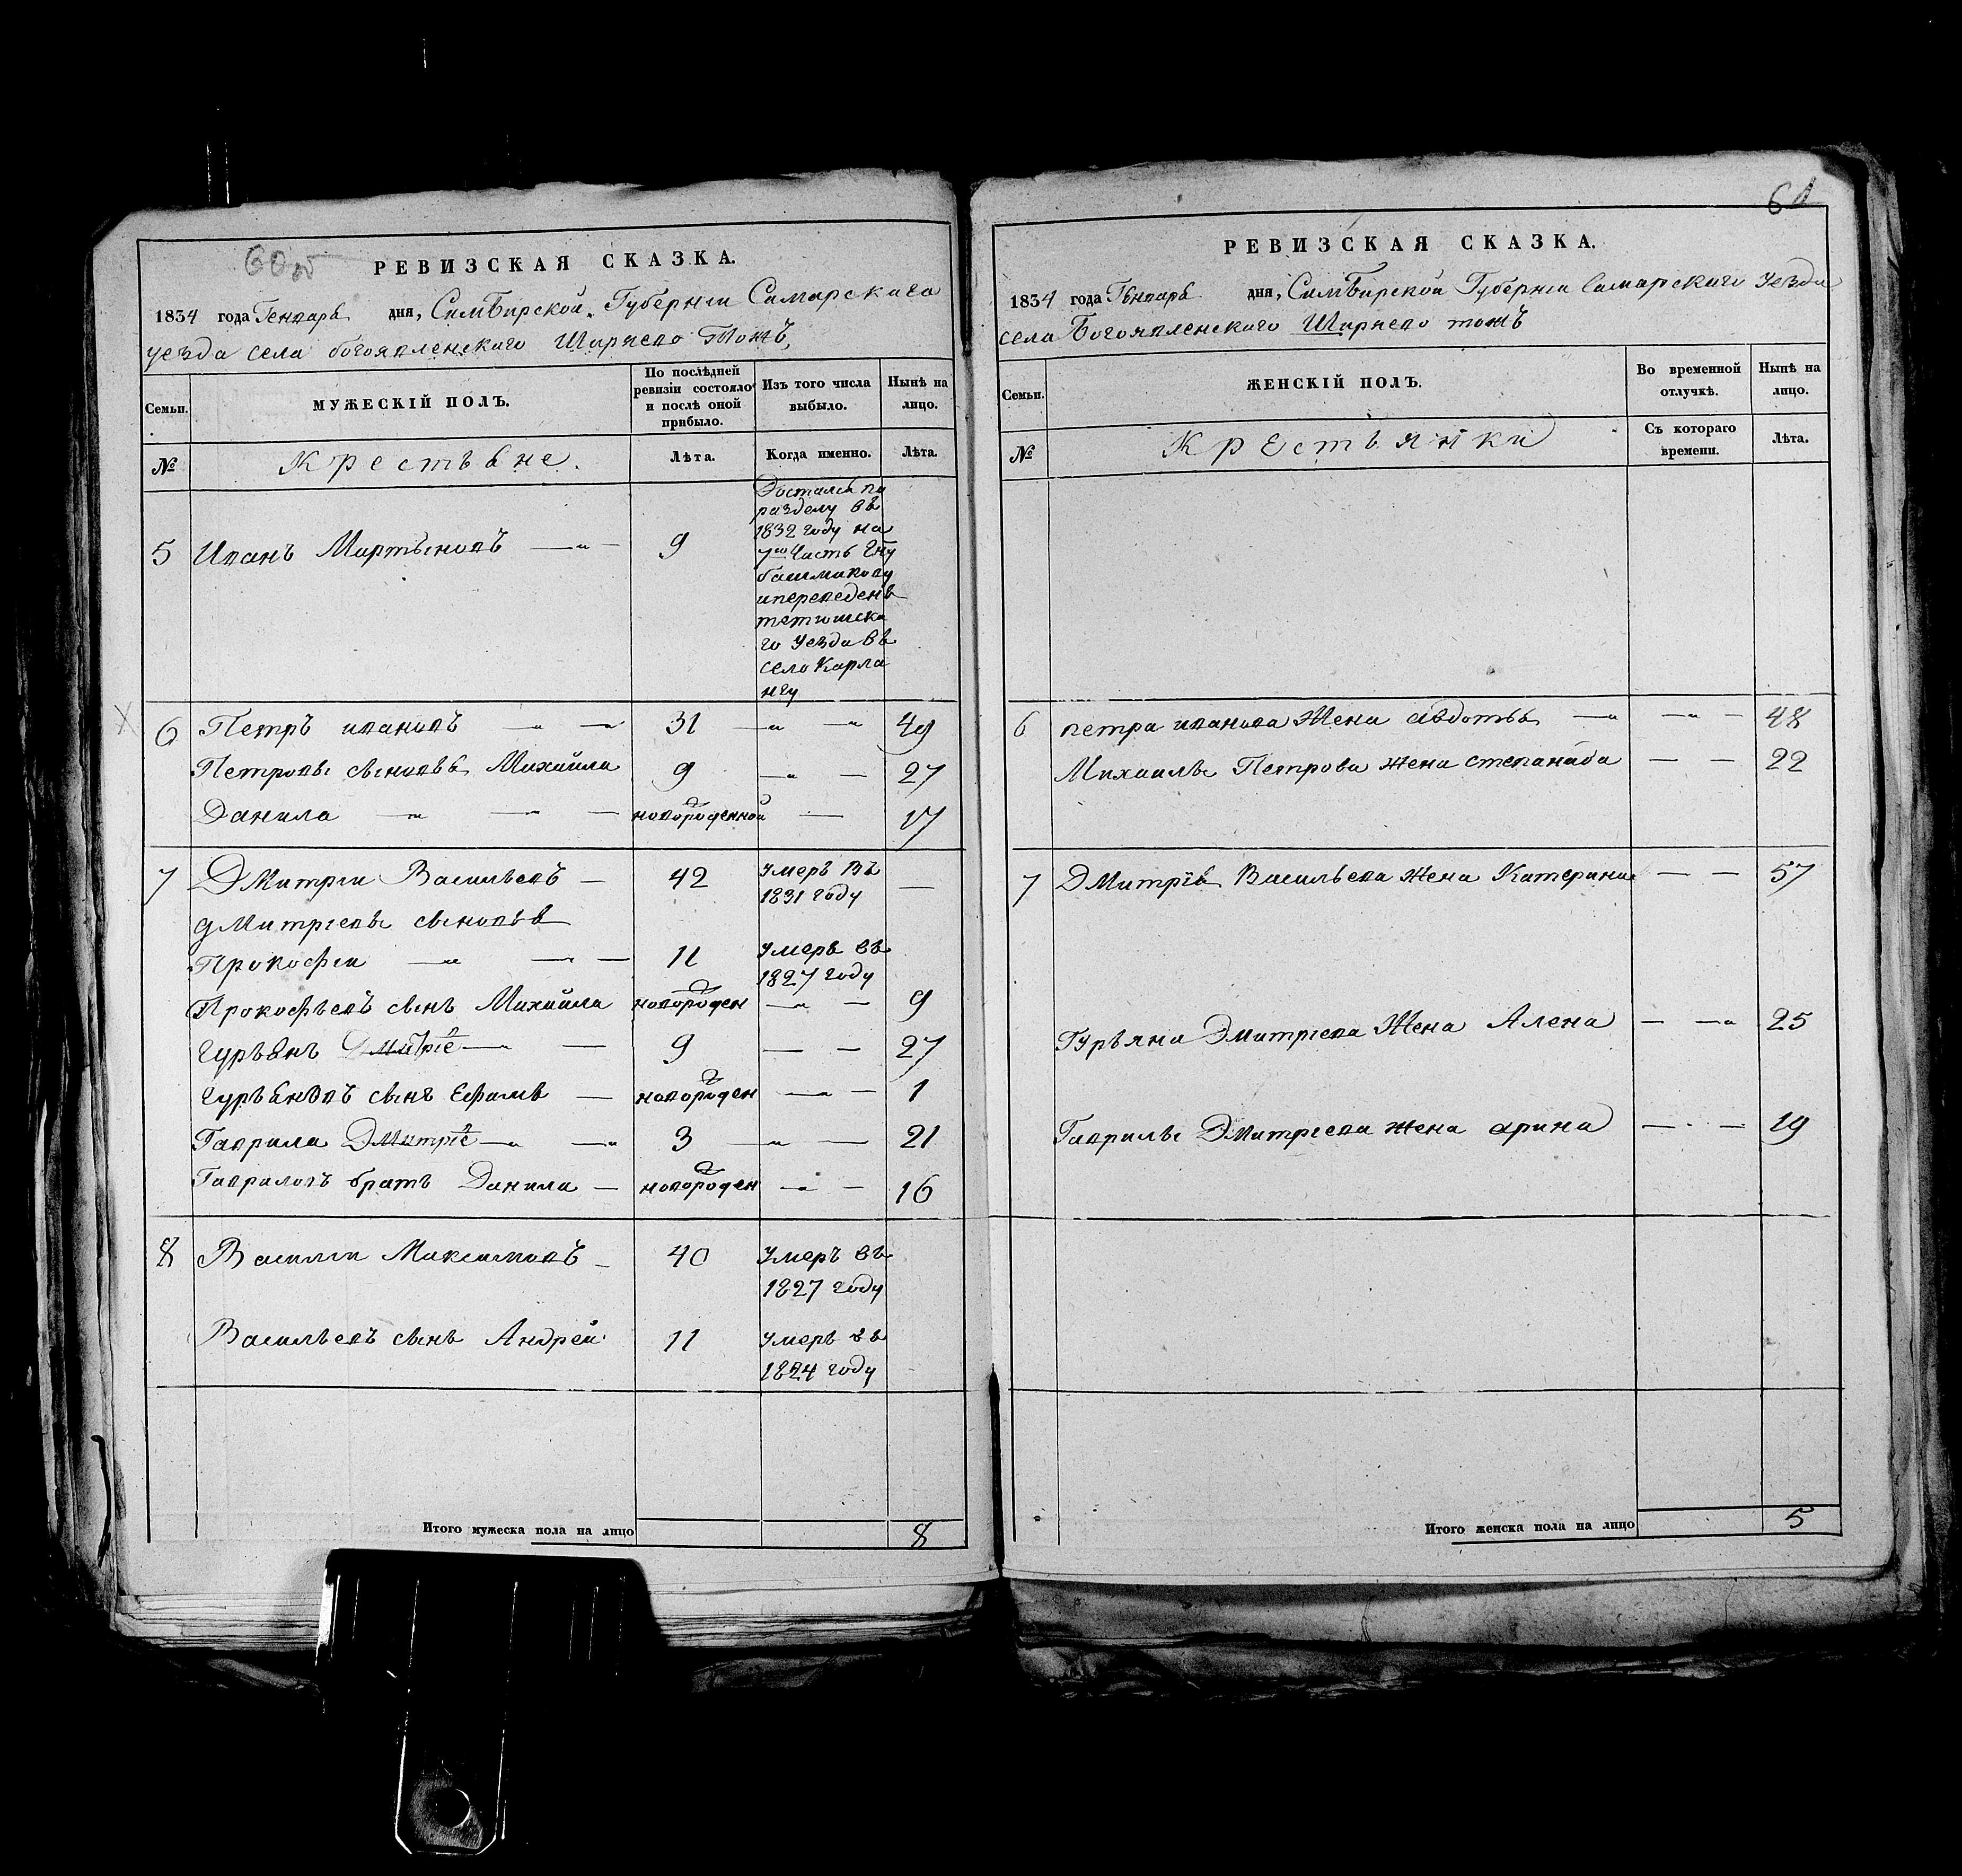 60об
РЕВИЗСКАЯ СКАЗКА.
1834 года Генваря дня, Симбирской Губернии Самарскаго
уезда села богоявленского Ширяево Тожъ,
Семьи.
МУЖЕСКІЙ ПОЛЪ.
По послѣдней ревизіи состояло и послѣ оной прибыло.
Изъ того числа выбыло.
Нынѣ на лицо.
№
Крестьяне.
Лѣта.
Когда именно.
Лѣта.
5 Иванъ Мартыновъ 9
Достался по
разделу въ
1832 году на
7ю Часть Гну
башмакову
ипереведенъ
тетюшска
го Уезда въ
село Карла
нгу
6 Петръ ивановъ 31 49
Петровы сыновья Михайла 9 27
Данила новорожденной 17
7 Дмитрии Васильевъ 42 Умеръ Въ 1831 году
дмитріевы сыновья
Прокофии 11 Умеръ въ 1827 году
Прокофьевъ сынъ Михайла новорожден 9
Гурьянъ Дмитріе 9 27
Гурьяновъ сынъ Ефимъ новорожден 1
Гаврила Дмитріе 3 21
Гавриловъ братъ Данила новорожден 16
8 Василии Максимовъ 40 Умеръ въ 1827 году
Васильевъ сынъ Андрей 11 Умеръ въ 1824 году
Итого мужеска пола на лицо 8
61
РЕВИЗСКАЯ СКАЗКА.
1834 года Генваря дня, Симбирской Губернии Самарскаго Уезда
села Богоявленского Ширяево тожъ
Семьи.
ЖЕНСКІЙ ПОЛЪ.
Во временной отлучкѣ.
Нынѣ на лицо.
№
Крестьянки
Съ котораго времени.
Лѣта.
6 петра иванова Жена авдотья 48
Михаилы Петрова жена степанида 22
7 Дмитрія Васильева Жена Катерина 57
Гурьяна Дмитріева Жена Алена 25
Гаврилы Дмитріева жена арина 19
Итого женска пола на лицо 5